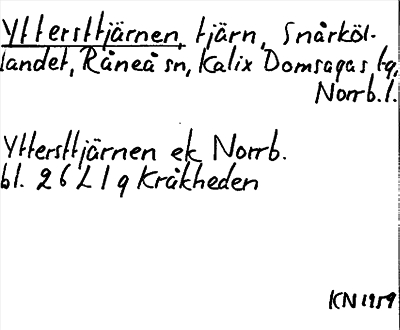 Yttersttjärnen, tjärn, Snårköl-
landet, Råneå sn, Kalix Domsagas tg,
Norrb.l.
Yttersttjärnen ek Norrb.
bl. 26 L 1 g Kråkheden
KN 1959